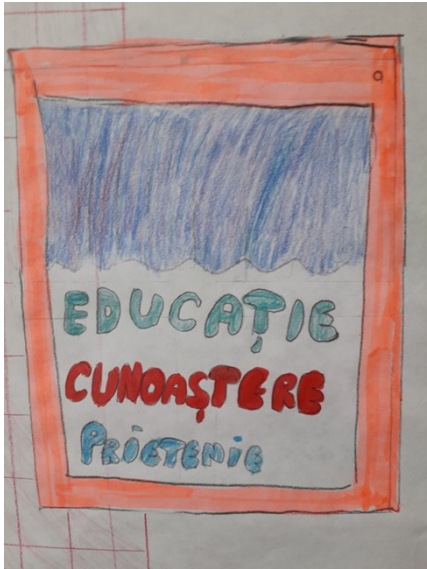 EDUCAȚIE
CUNOAȘTERE
PRIETENIE